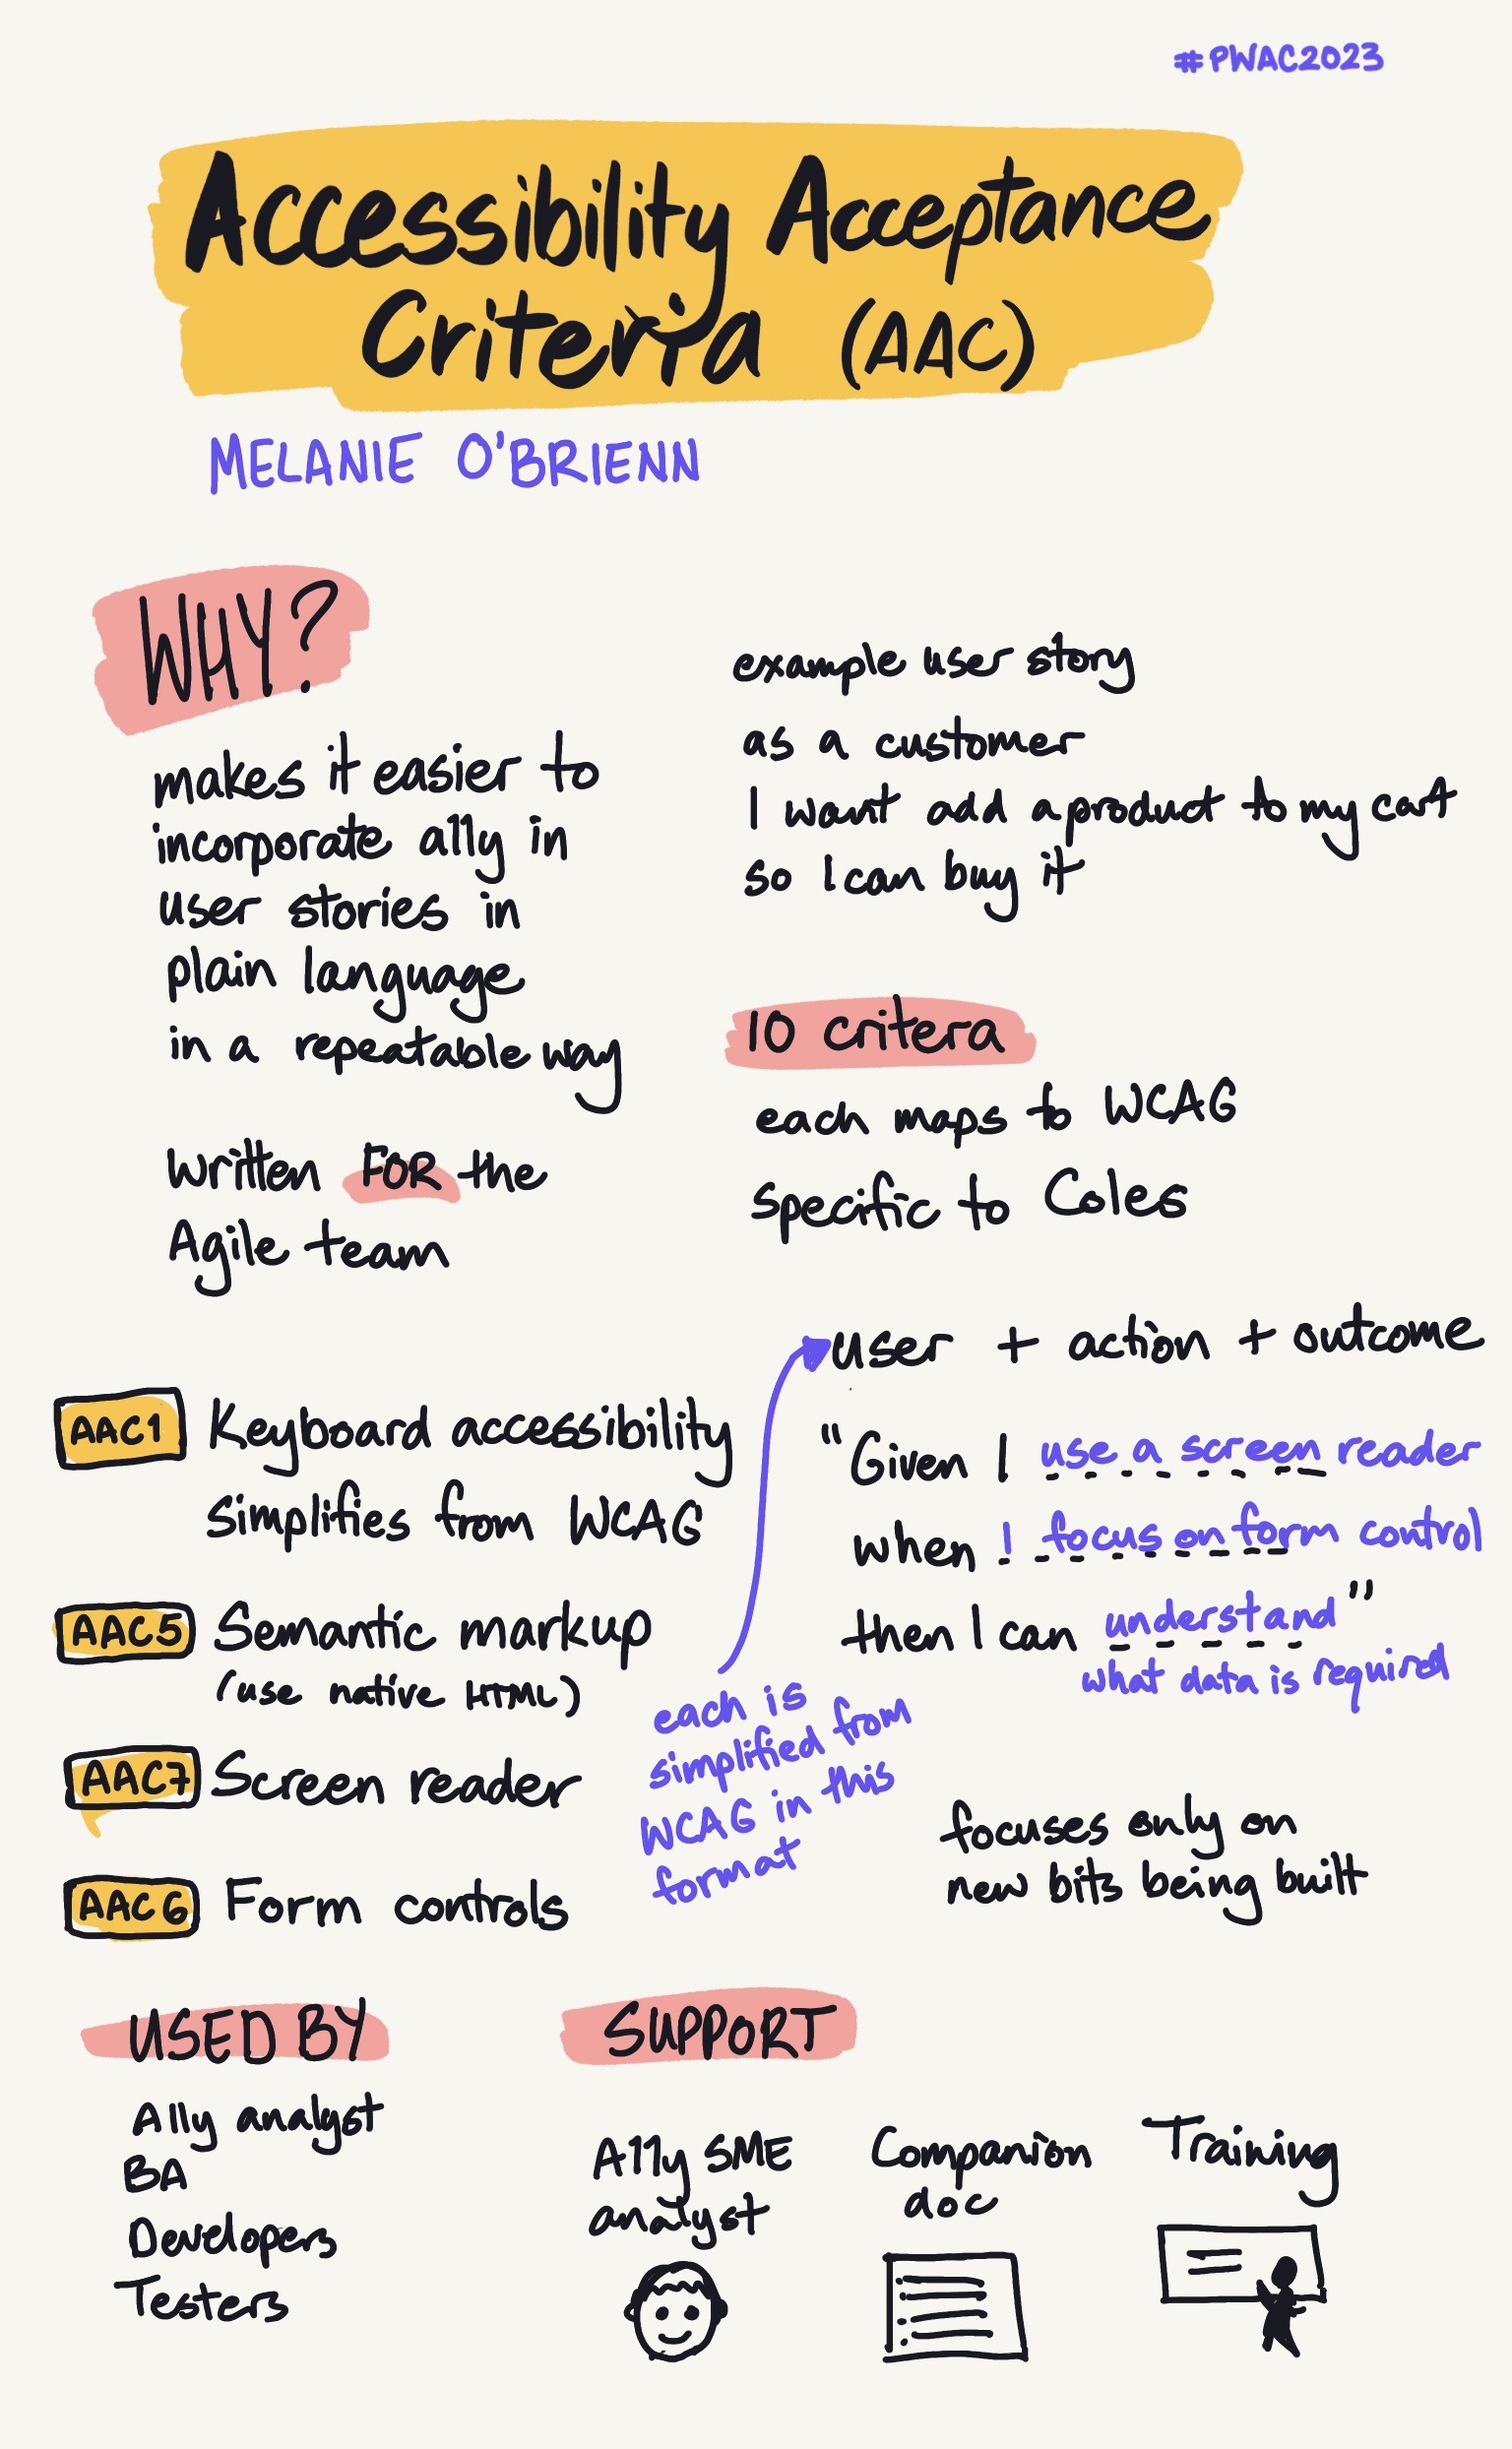 #PWAC2023
Accessibility Acceptance
Criteria (AAC)
MELANIE O'BRIENN
WHY?
makes it easier to
incorporate a11y in
user stories in
plain language
in a repeatable way
Written FOR the
Agile team
example user story
as a customer
I want add a product to my cart
so I can buy it
10 critera
each maps to WCAG
specific to Coles
AAC1 Keyboard accessibility
Simplifies from WCAG
AAC5 Semantic markup
(use native HTML)
AAC7 Screen reader
AAC6 Form controls
each is
simplified from
WCAG in this
format
user + action + outcome
"Given I use a screen reader
when I focus on form control
then I can understand"
what data is required
focuses only on
new bits being built
USED BY
A11y analyst
BA
Developers
Testers
SUPPORT
A11y SME
analyst
Companion
doc
Training